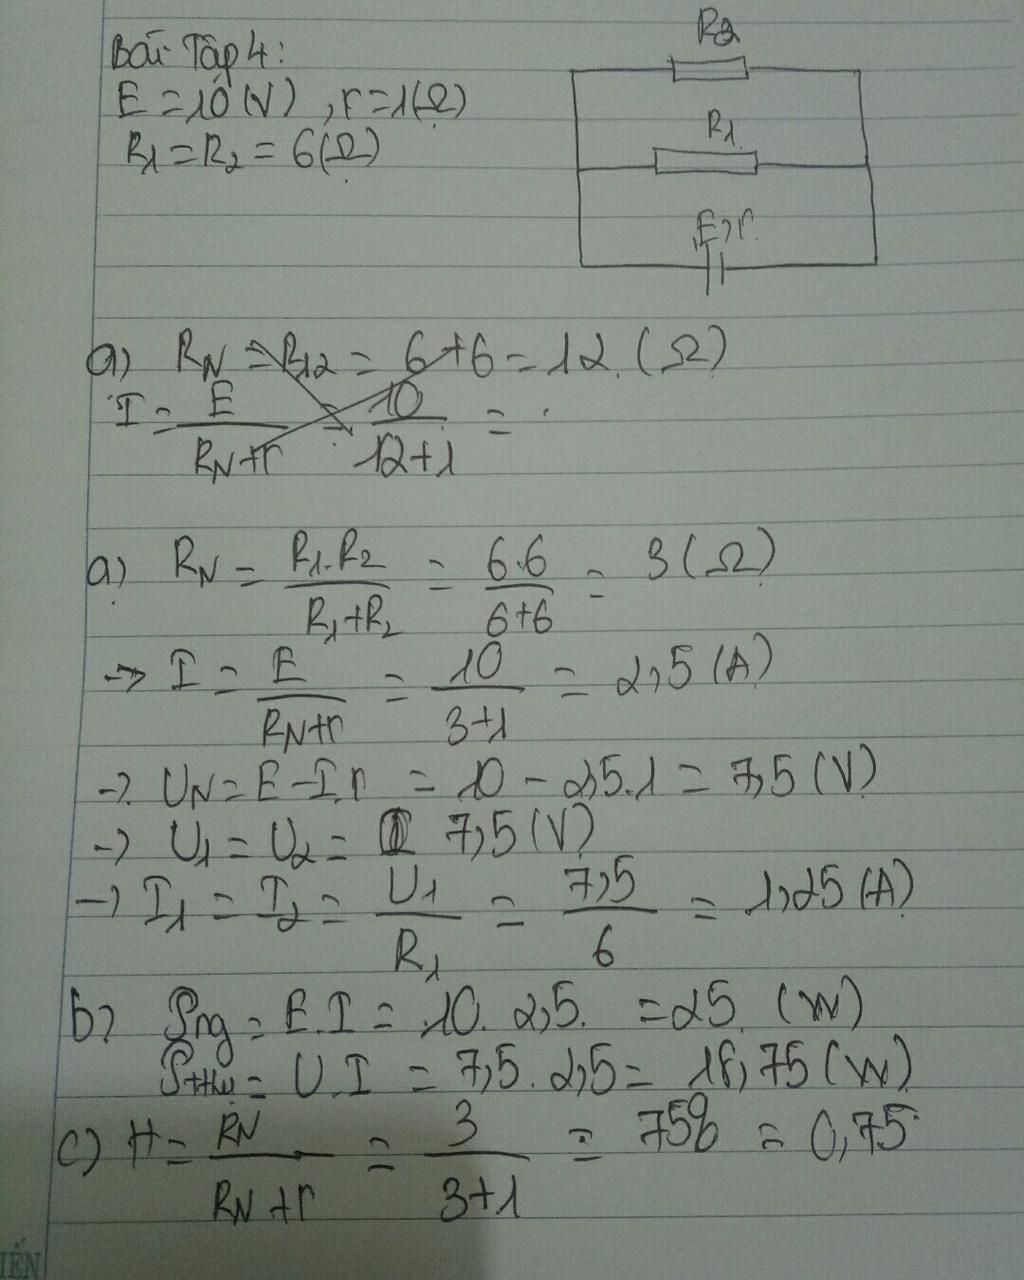 Bài Tập 4:
E = 10 (V) , r = 1 (Ω)
R1 = R2 = 6 (Ω)
R2
R1
E, r
a) RN = R12 = 6 + 6 = 12 (Ω)
I = E / (RN + r) = 10 / (12 + 1) =
a) RN = R1.R2 / (R1 + R2) = 6.6 / (6 + 6) = 3 (Ω)
→ I = E / (RN + r) = 10 / (3 + 1) = 2,5 (A)
→ UN = E - I.r = 10 - 2,5.1 = 7,5 (V)
→ U1 = U2 = 7,5 (V)
→ I1 = I2 = U1 / R1 = 7,5 / 6 = 1,25 (A)
b) Png = E.I = 10. 2,5. = 25 (W)
Pthu = U.I = 7,5 . 2,5 = 18,75 (W)
c) H = RN / (RN + r) = 3 / (3 + 1) = 75% = 0,75
IẾN